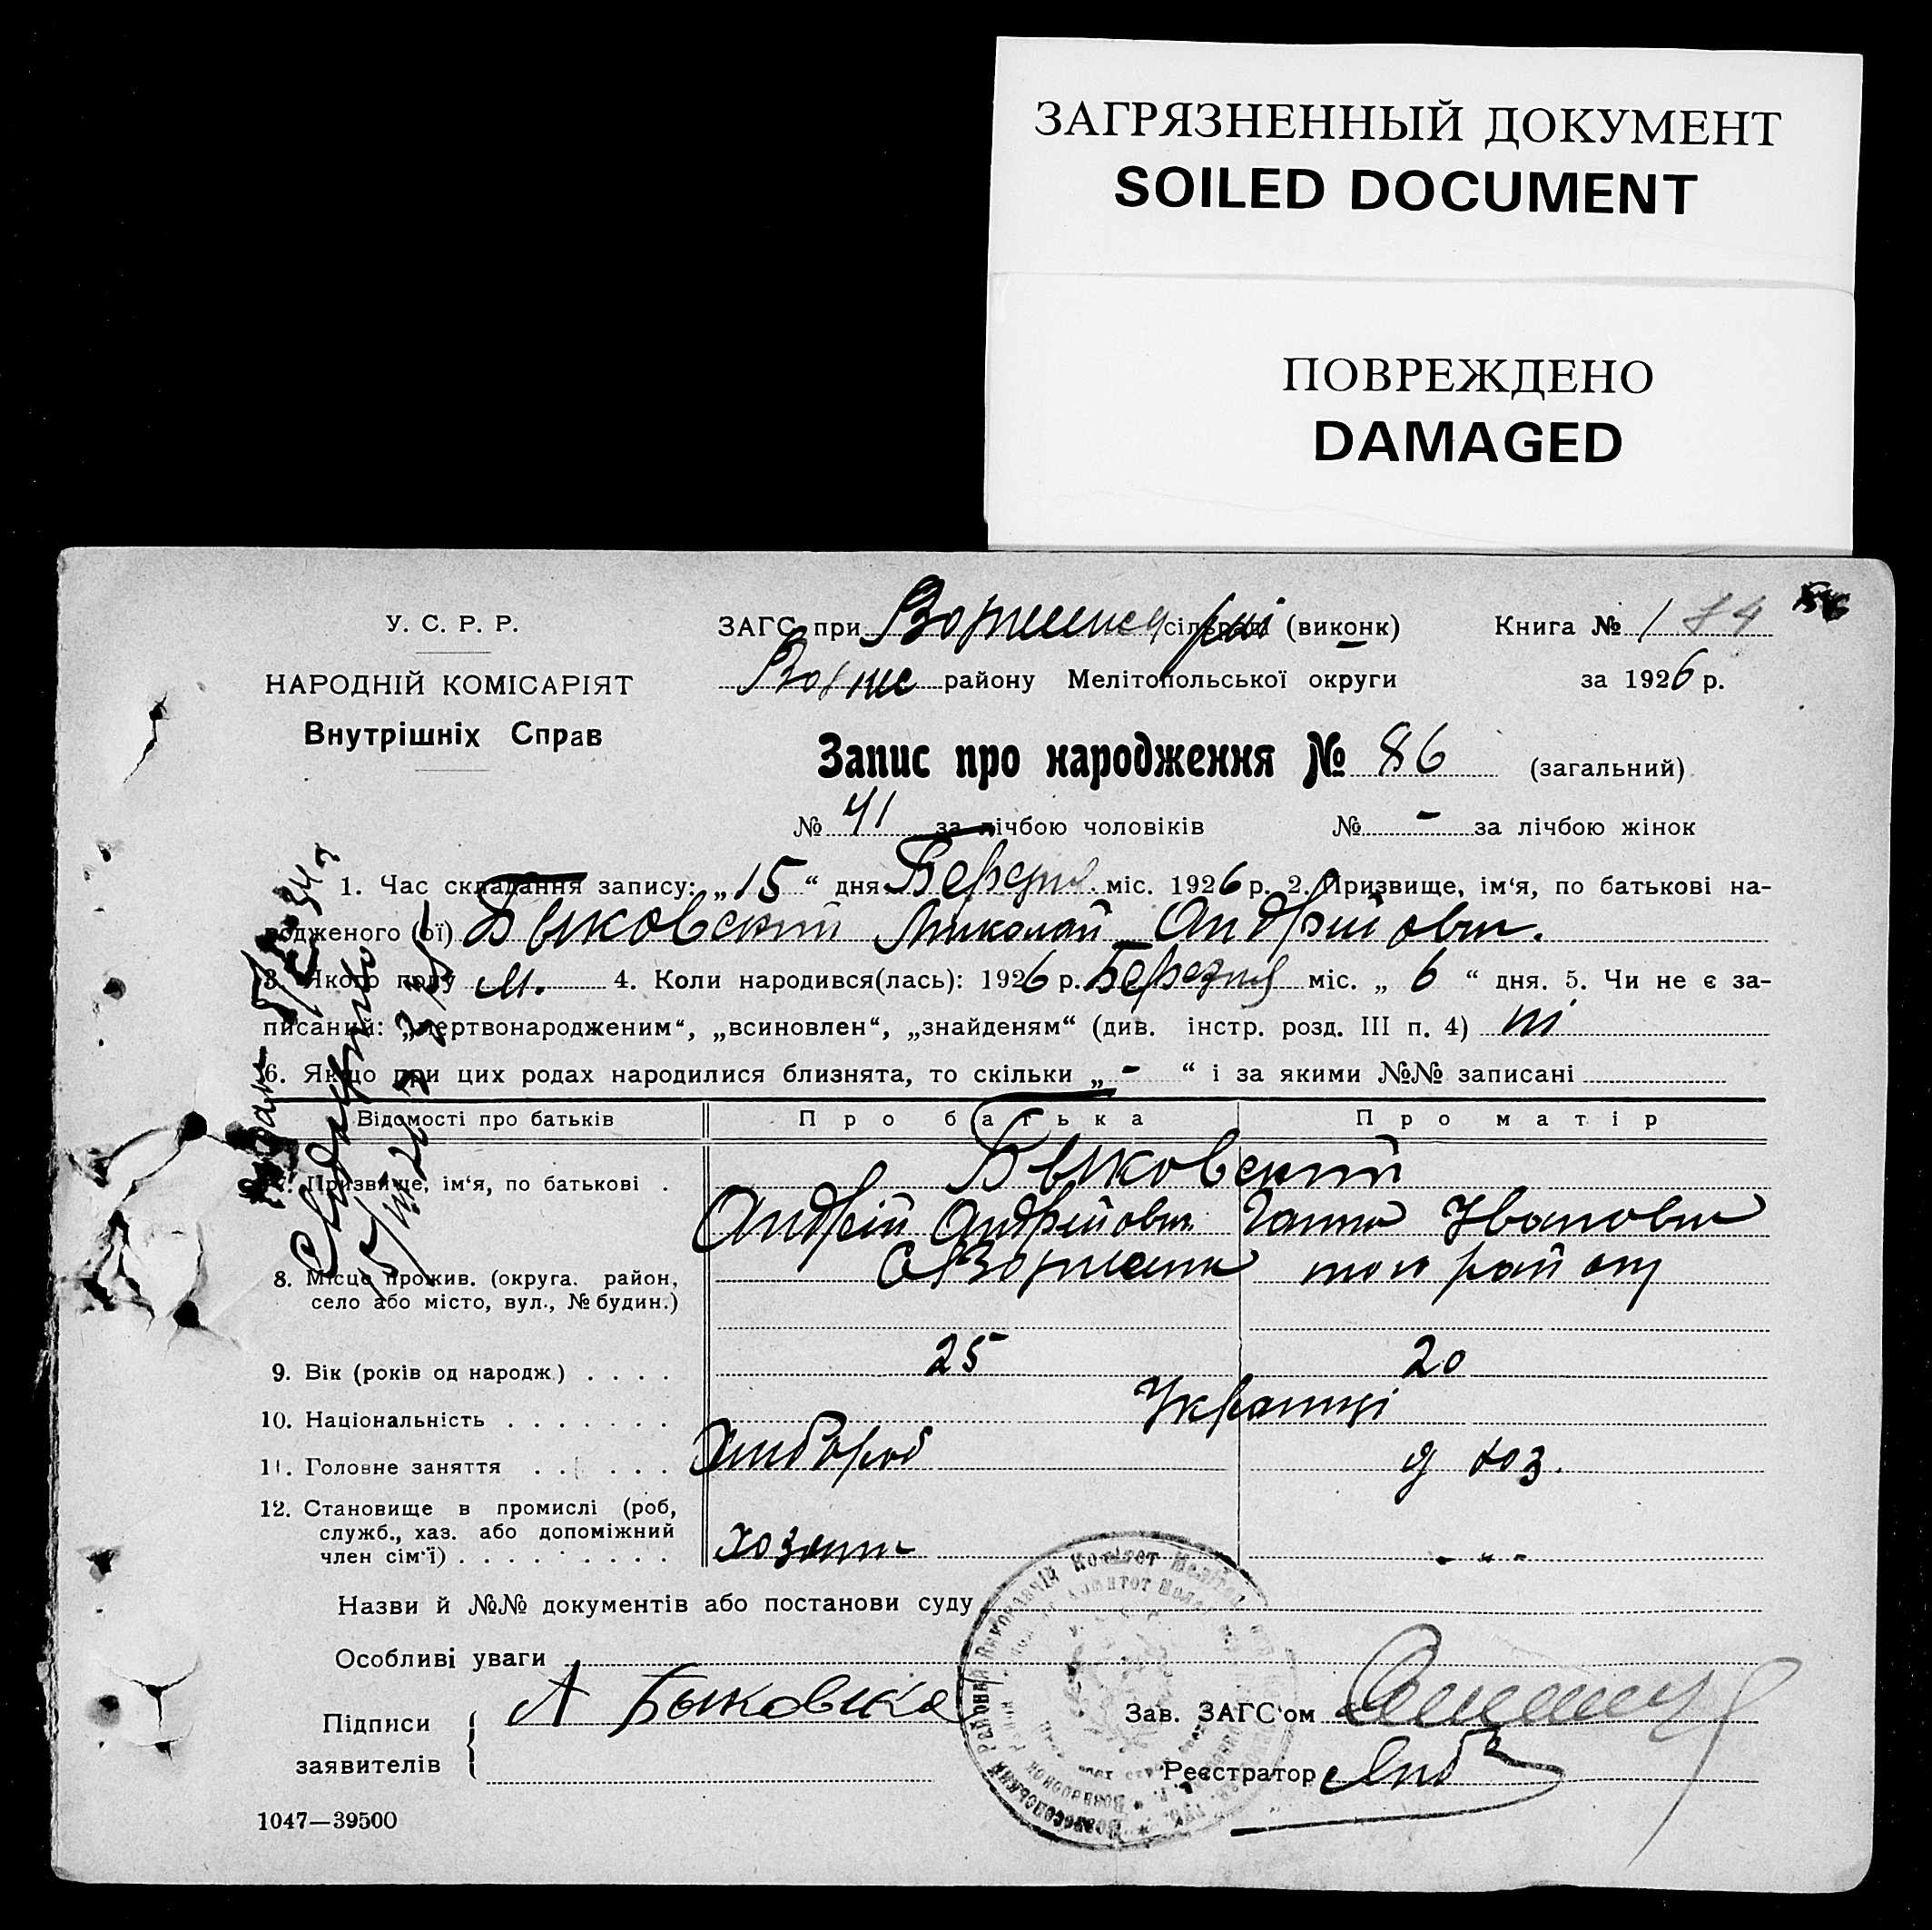 ЗАГРЯЗНЕННЫЙ ДОКУМЕНТ
SOILED DOCUMENT
ПОВРЕЖДЕНО
DAMAGED
У. С. Р. Р.
НАРОДНІЙ КОМІСАРІЯТ
Внутрішніх Справ
ЗАГС при сільраді (виконк)
Книга № 1
району Мелітопольської округи
за 1926 р.
Запис про народження № 86 (загальний)
№ 41 за лічбою чоловіків № - за лічбою жінок
1. Час складання запису: „15“ дня Березня міс. 1926 р. 2. Призвище, ім‘я, по батькові на-
родженого (ої) Быковский Миколай Андрійович.
3. Якого полу м. 4. Коли народився(лась): 1926 р. Березня міс. „ 6 “ дня. 5. Чи не є за-
писаний: „мертвонародженим“, „всиновлен“, „знайденям“ (див. інстр. розд. III п. 4) ні
6. Якщо при цих родах народилися близнята, то скільки „ - “ і за якими №№ записані
Відомості про батьків Про батька Про матір
Быковский
7. Призвище, ім‘я, по батькові . Андрій Андрійович Ганна Івановна
8. Місце прожив. (округа. район, того району
село або місто, вул., № будин.)
9. Вік (років од народж.) . . . . 25 20
10. Національність . . . . . . . Українці
11. Головне заняття . . . . . . Хлібороб д хоз.
12. Становище в промислі (роб,
служб., хаз. або допоміжний
член сім‘ї) . . . . . . . . . Хозяин - " -
Назви й №№ документів або постанови суду
Особливі уваги
Підписи
заявителів
А Быковска
Зав. ЗАГС‘ом
Реєстратор
1047—39500